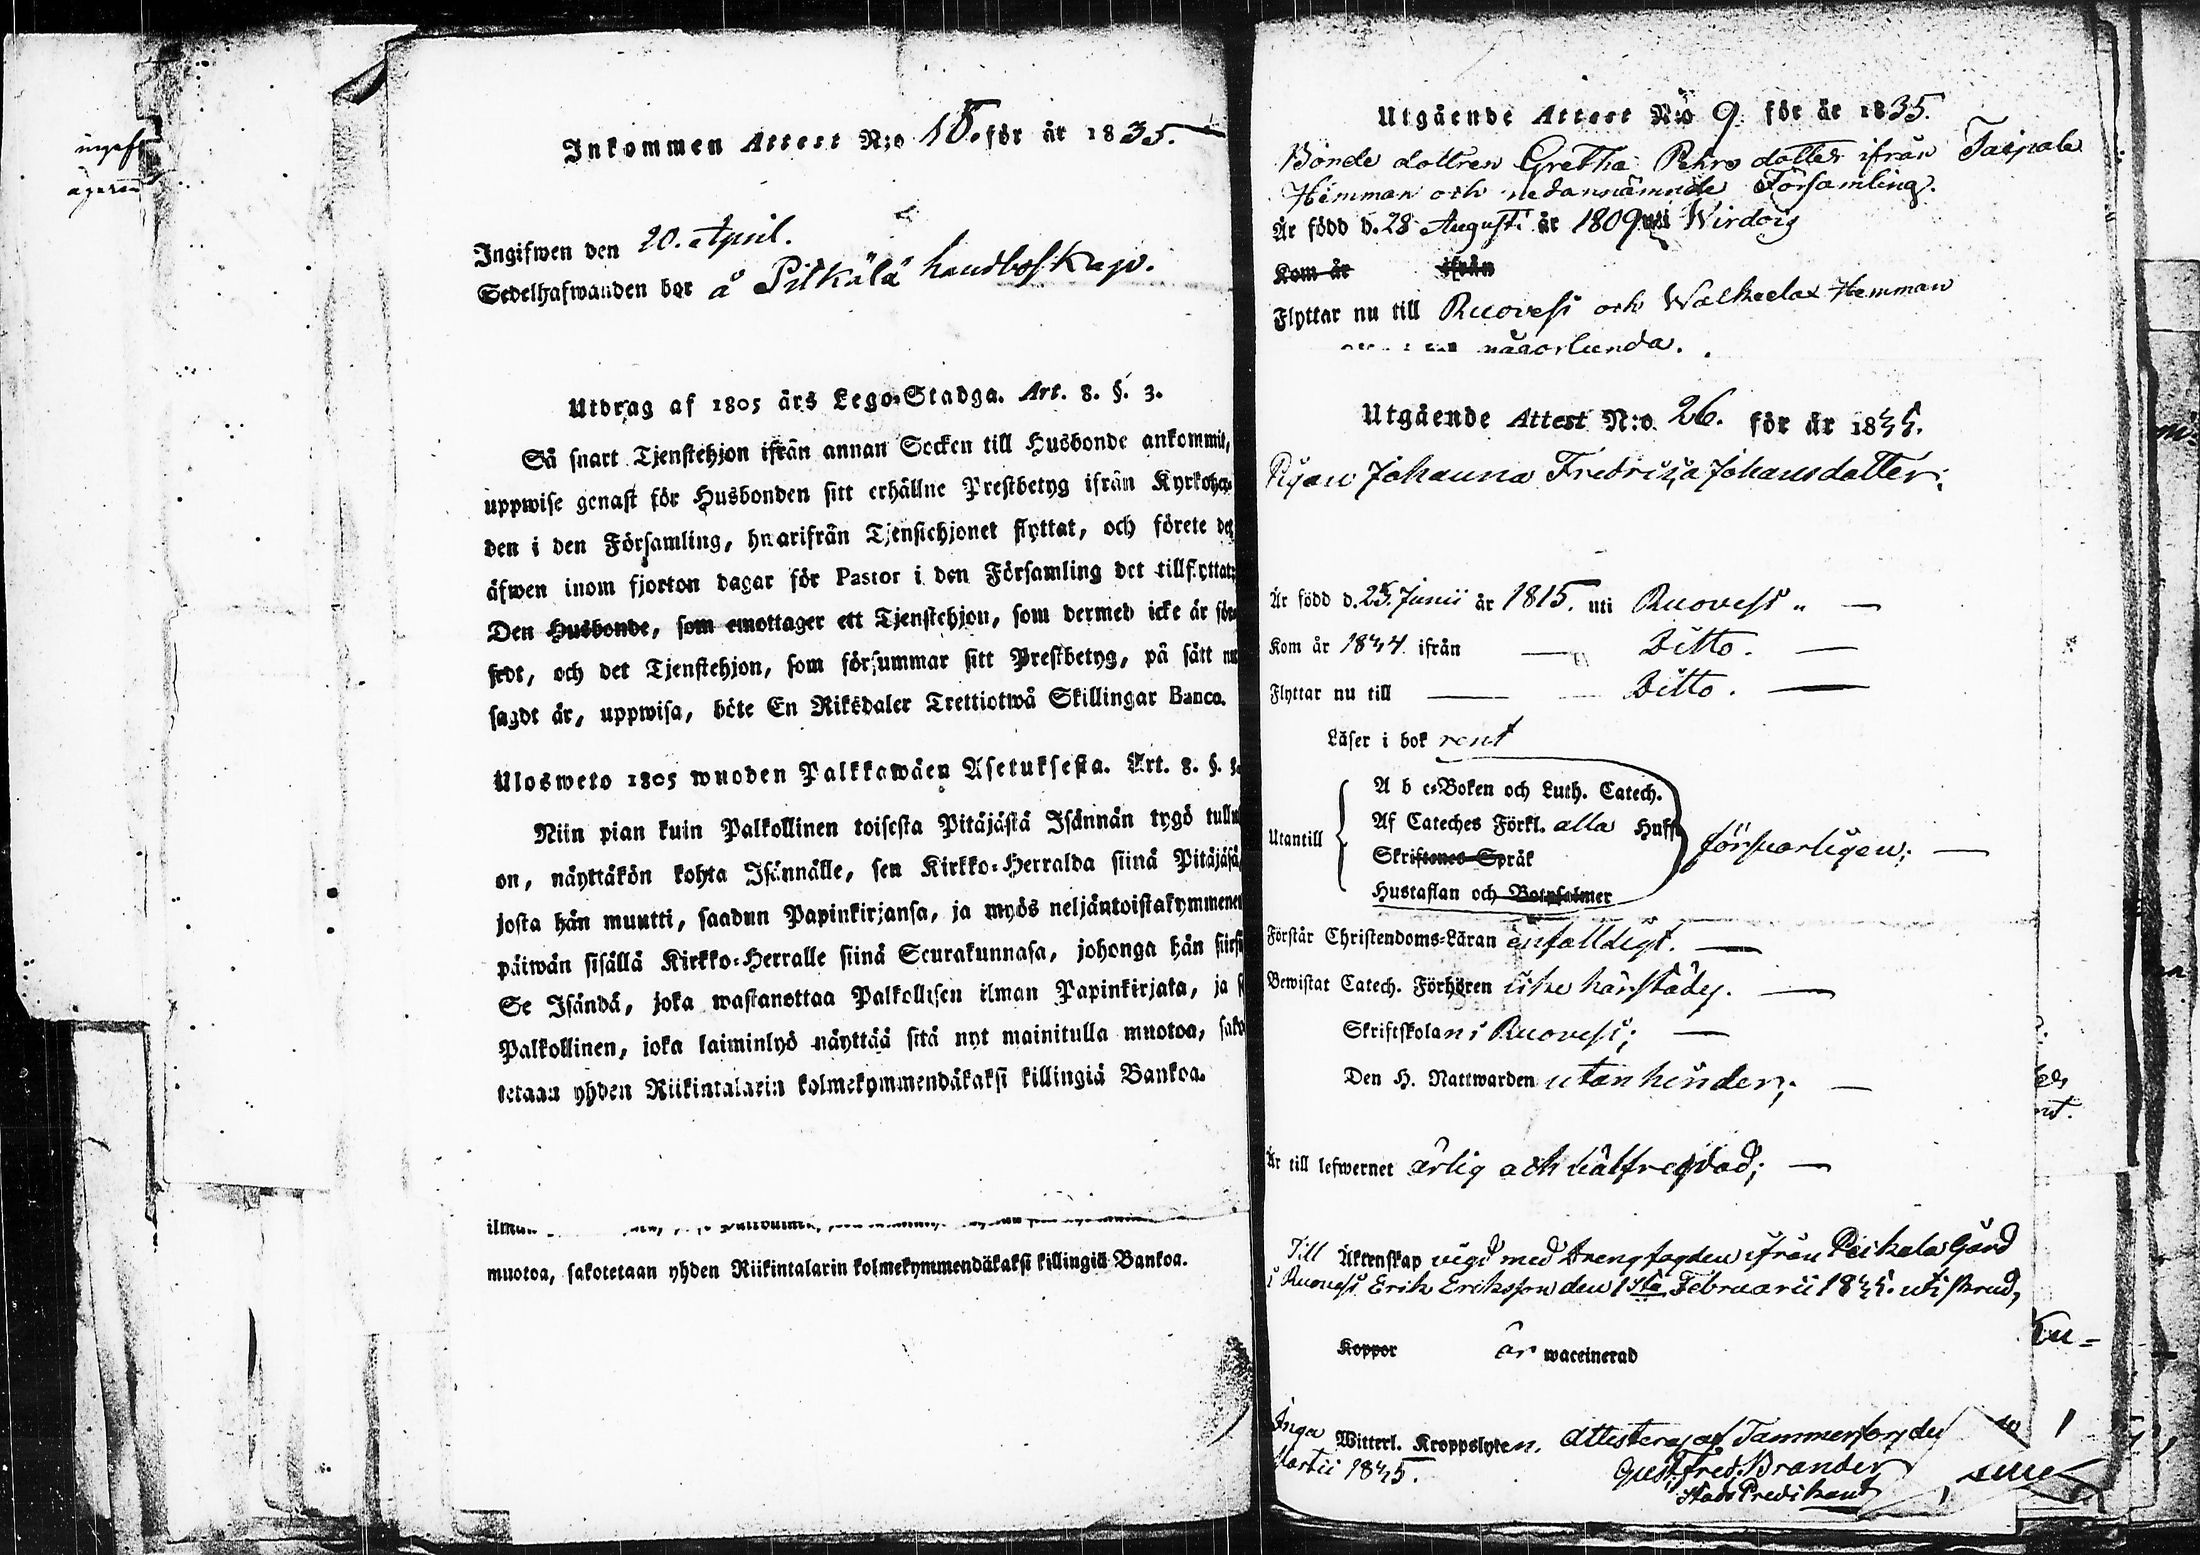 Inkommen Attest N:o 15. för år 1835.
Ingifwen den 20. April.
Sedelhafwanden bor å Pitkälä landbolskap.
Utdrag af 1805 års Lego-Stadga. Art. 8. §. 3.
Så snart Tjenstehjon ifrån annan Socken till Husbonde ankommit,
uppwise genast för Husbonden sitt erhållne Prestbetyg ifrån Kyrkoher-
den i den Församling, hwarifrån Tjenstehjonet flyttat, och förete det
äfwen inom fjorton dagar för Pastor i den Församling det tillflyttat;
Den Husbonde, som emottager ett Tjenstehjon, som dermed icke är för-
sedt, och det Tjenstehjon, som försummar sitt Prestbetyg, på sätt nu
sagdt är, uppwisa, böte En Riksdaler Trettiotwå Skillingar Banco.
Ulosweto 1805 wuoden Palkkawäen Asetuksesta. Art. 8. §. 3.
Niin pian kuin Palkollinen toisesta Pitäjästä Isännän tygö tullu
on, näyttäkön kohta Isännälle, sen Kirkko-Herralda siinä Pitäjäsä,
josta hän muutti, saadun Papinkirjansa, ja myös neljäntoistakymmenen
päiwän sisällä Kirkko-Herralle siinä Seurakunnasa, johonga hän siirsi
Se Isändä, joka wastanottaa Palkollisen ilman Papinkirjata, ja se
Palkollinen, joka laiminlyö näyttää sitä nyt mainitulla muotoa, sako
tetaan yhden Riikintalarin kolmekymmendäkaksi killingiä Bankoa.
ilman
muotoa, sakotetaan yhden Riikintalarin kolmekymmendäkaksi killingiä Bankoa.
Utgående Attest N:o 9. för år 1835.
Bonde dottren Gretha Pehrs dotter ifrån Taipale
Hemman och nedannämnde Församling.
Är född d. 28 Augusti år 1809 uti Wirdois
Kom år ifrån
Flyttar nu till Ruovesi och Walkeelax Hemman
någorlunda.
Utgående Attest N:o. 26. för år 1835.
Pigan Johanna Fredrica Johansdotter;
Är född d. 25. Junii år 1815. uti Ruovesi
Kom år 1834 ifrån Ditto.
Flyttar nu till Ditto.
Läser i bok rent
A b c-Boken och Luth. Catech.
Af Cateches Förkl. alla Huff
Utantill försvarligen;
Skriftenes Språk
Hustaflan och Botpsalmer
Förstår Christendoms-Läran enfalldigt.
Bewistat Catech. Förhören icke härstädes.
Skriftskolan i Ruovesi;
Den H. Nattwarden utan hinder;
Är till lefwernet ärlig och wälfrejdad;
Till Äktenskap vigd med Drengfogden ifrån Pekala Gård
i Ruovesi Erik Eriksson den 1sta Februarii 1835.
Koppor är waccinerad
Inga Witterl. Kroppslyten. Attesteras af Tammerfors den
Martii 1835. Gust. Fred. Brander
Stads Predikant